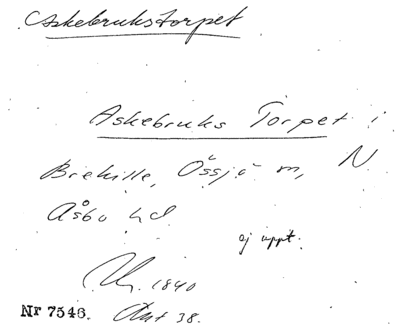 Askebrukstorpet
Askebruks Torpet i
Brekille, Össjö m, N
Åsbo hd
ej uppt.
1840
Nr 7546. Akt 38.